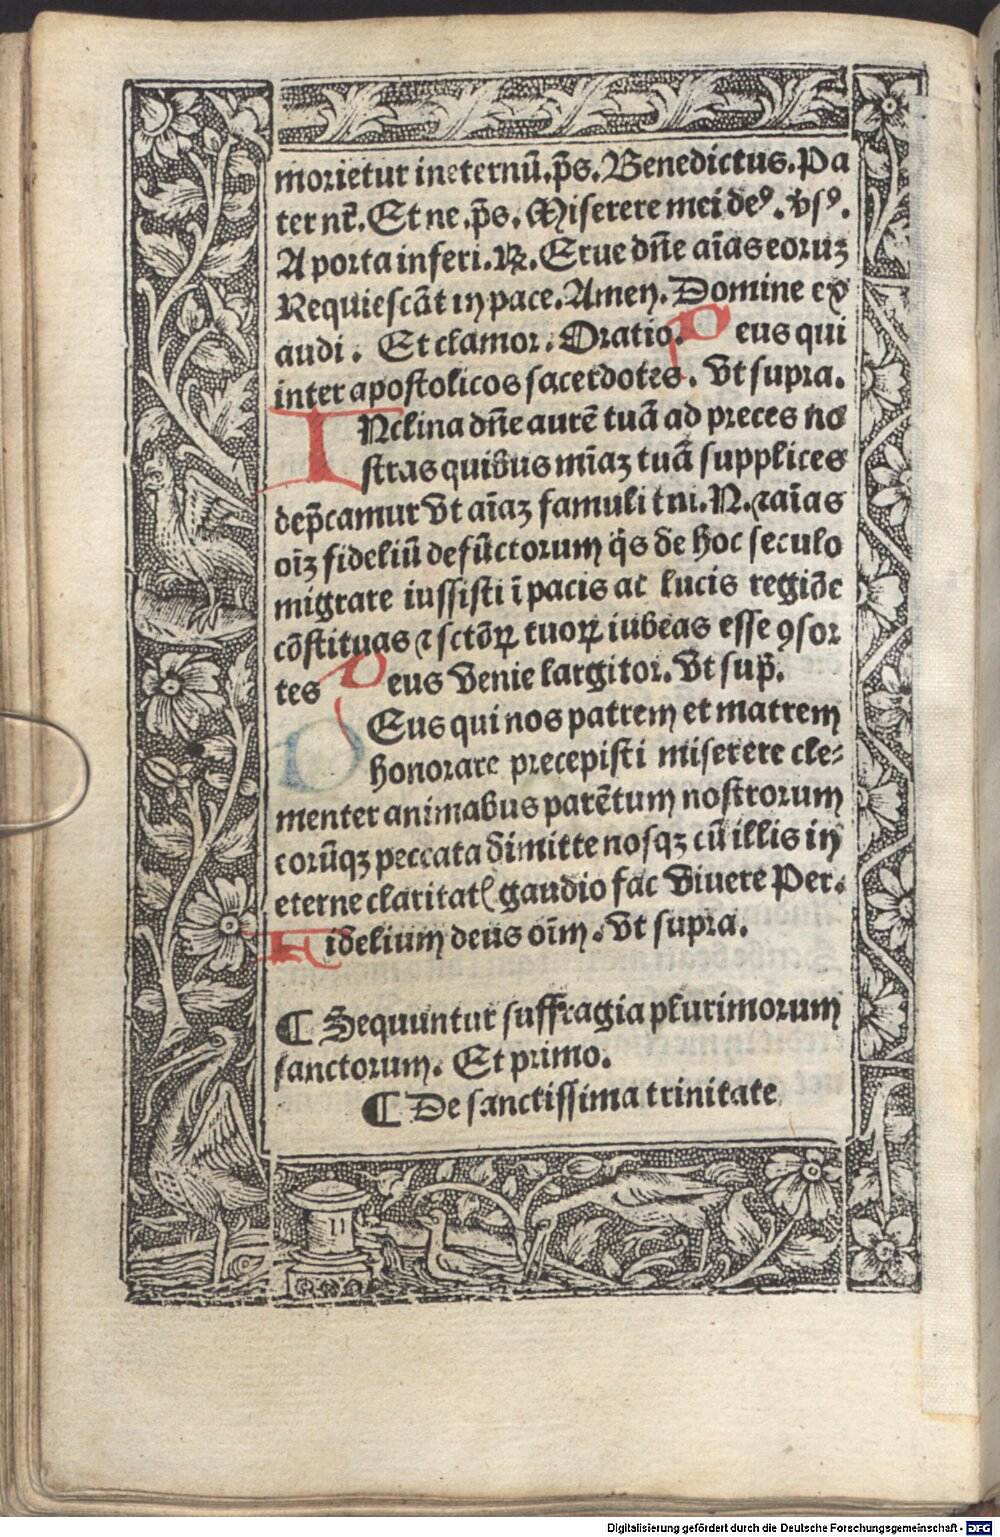 morietur in eternū.p̄s. Benedictus. Pa
ter nr̄. Et ne.p̄s. Miserere mei deꝰ. v̄sꝰ.
A porta inferi. ℟. Erue dn̄e aīas eoruꝫ
Requiescāt in pace. Amen. Domine ex
audi. Et clamor. Oratio. Deus qui
inter apostolicos sacerdotes. vt supra.
INclina dn̄e aurē tuā ad preces no
stras quibus mīaꝫ tuā supplices
dep̄camur vt aīaꝫ famuli tui. N. ⁊ aīas
oīꝫ fideliū defūctorum q̄s de hoc seculo
migrare iussisti ī pacis ac lucis regiōe
cōstituas ⁊ sctōꝝ tuoꝝ iubeas esse ꝯsor
tes Deus venie largitor. vt sup̄.
DEus qui nos patrem et matrem
honorare precepisti miserere cle-
menter animabus parētum nostrorum
eorūqꝫ peccata dimitte nosqꝫ cū illis in
eterne claritatꝭ gaudio fac viuere Per.
Fidelium deus oīm. vt supra.
¶ Sequuntur suffragia plurimorum
sanctorum. Et primo.
¶ De sanctissima trinitate
Digitalisierung gefördert durch die Deutsche Forschungsgemeinschaft - DFG